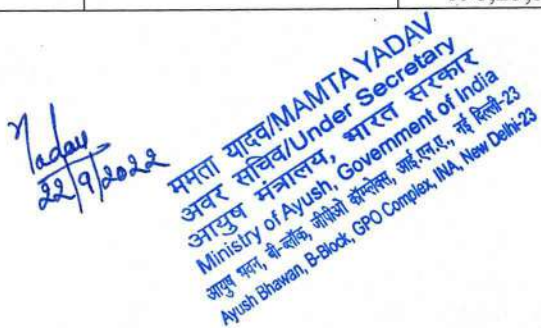 Yadav
22/9/2022
ममता यादव/MAMTA YADAV
अवर सचिव/Under Secretary
आयुष मंत्रालय, भारत सरकार
Ministry of Ayush, Government of India
आयुष भवन, बी-ब्लॉक, जीपीओ कॉम्प्लेक्स, आई.एन.ए., नई दिल्ली-23
Ayush Bhawan, B-Block, GPO Complex, INA, New Delhi-23